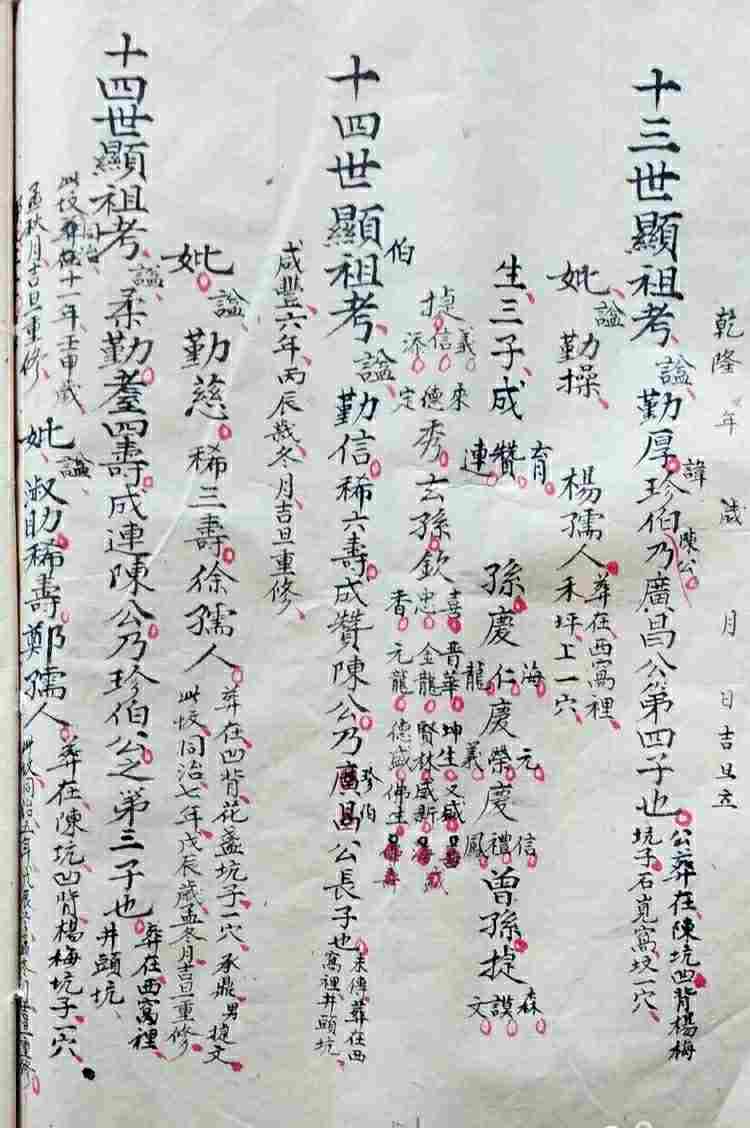 乾隆 年 歲 月 日吉旦立
十三世顯祖考諡勤厚諱珍伯陳公乃廣昌公第四子也
公葬在陳坑凹背楊梅
坑子石寬窩坟一穴
妣諡勤操楊孺人
葬在西窩裡
禾坪上一穴
生三子成
育
贊
連
孫慶仁慶榮慶禮
海
元
信
龍
義
鳳
曾孫捷
森
讚
文
捷
義
信
添
來
德
定
秀玄孫欽
喜晋華坤生又盛
忠金龍賢林威新
香元龍德盛佛生
十四世顯祖考諡勤信稀六壽成贊陳公乃珍伯公長子也
伯
未傳葬在西
窩裡井頭坑
咸豐六年丙辰歲冬月吉旦重修
妣諡勤慈稀三壽徐孺人
葬在凹背花盖坑子一穴承鼎男捷文
此坟同治七年戊辰歲孟冬月吉旦重修
十四世顯祖考諡柔勤耋四壽成連陳公乃珍伯公之第三子也
葬在西窩裡
井頭坑
此坟葬在同治十一年壬申歲
孟秋月吉旦重修
妣諡淑助稀壽鄭孺人
葬在陳坑凹背楊梅坑子一穴
此坟同治五年